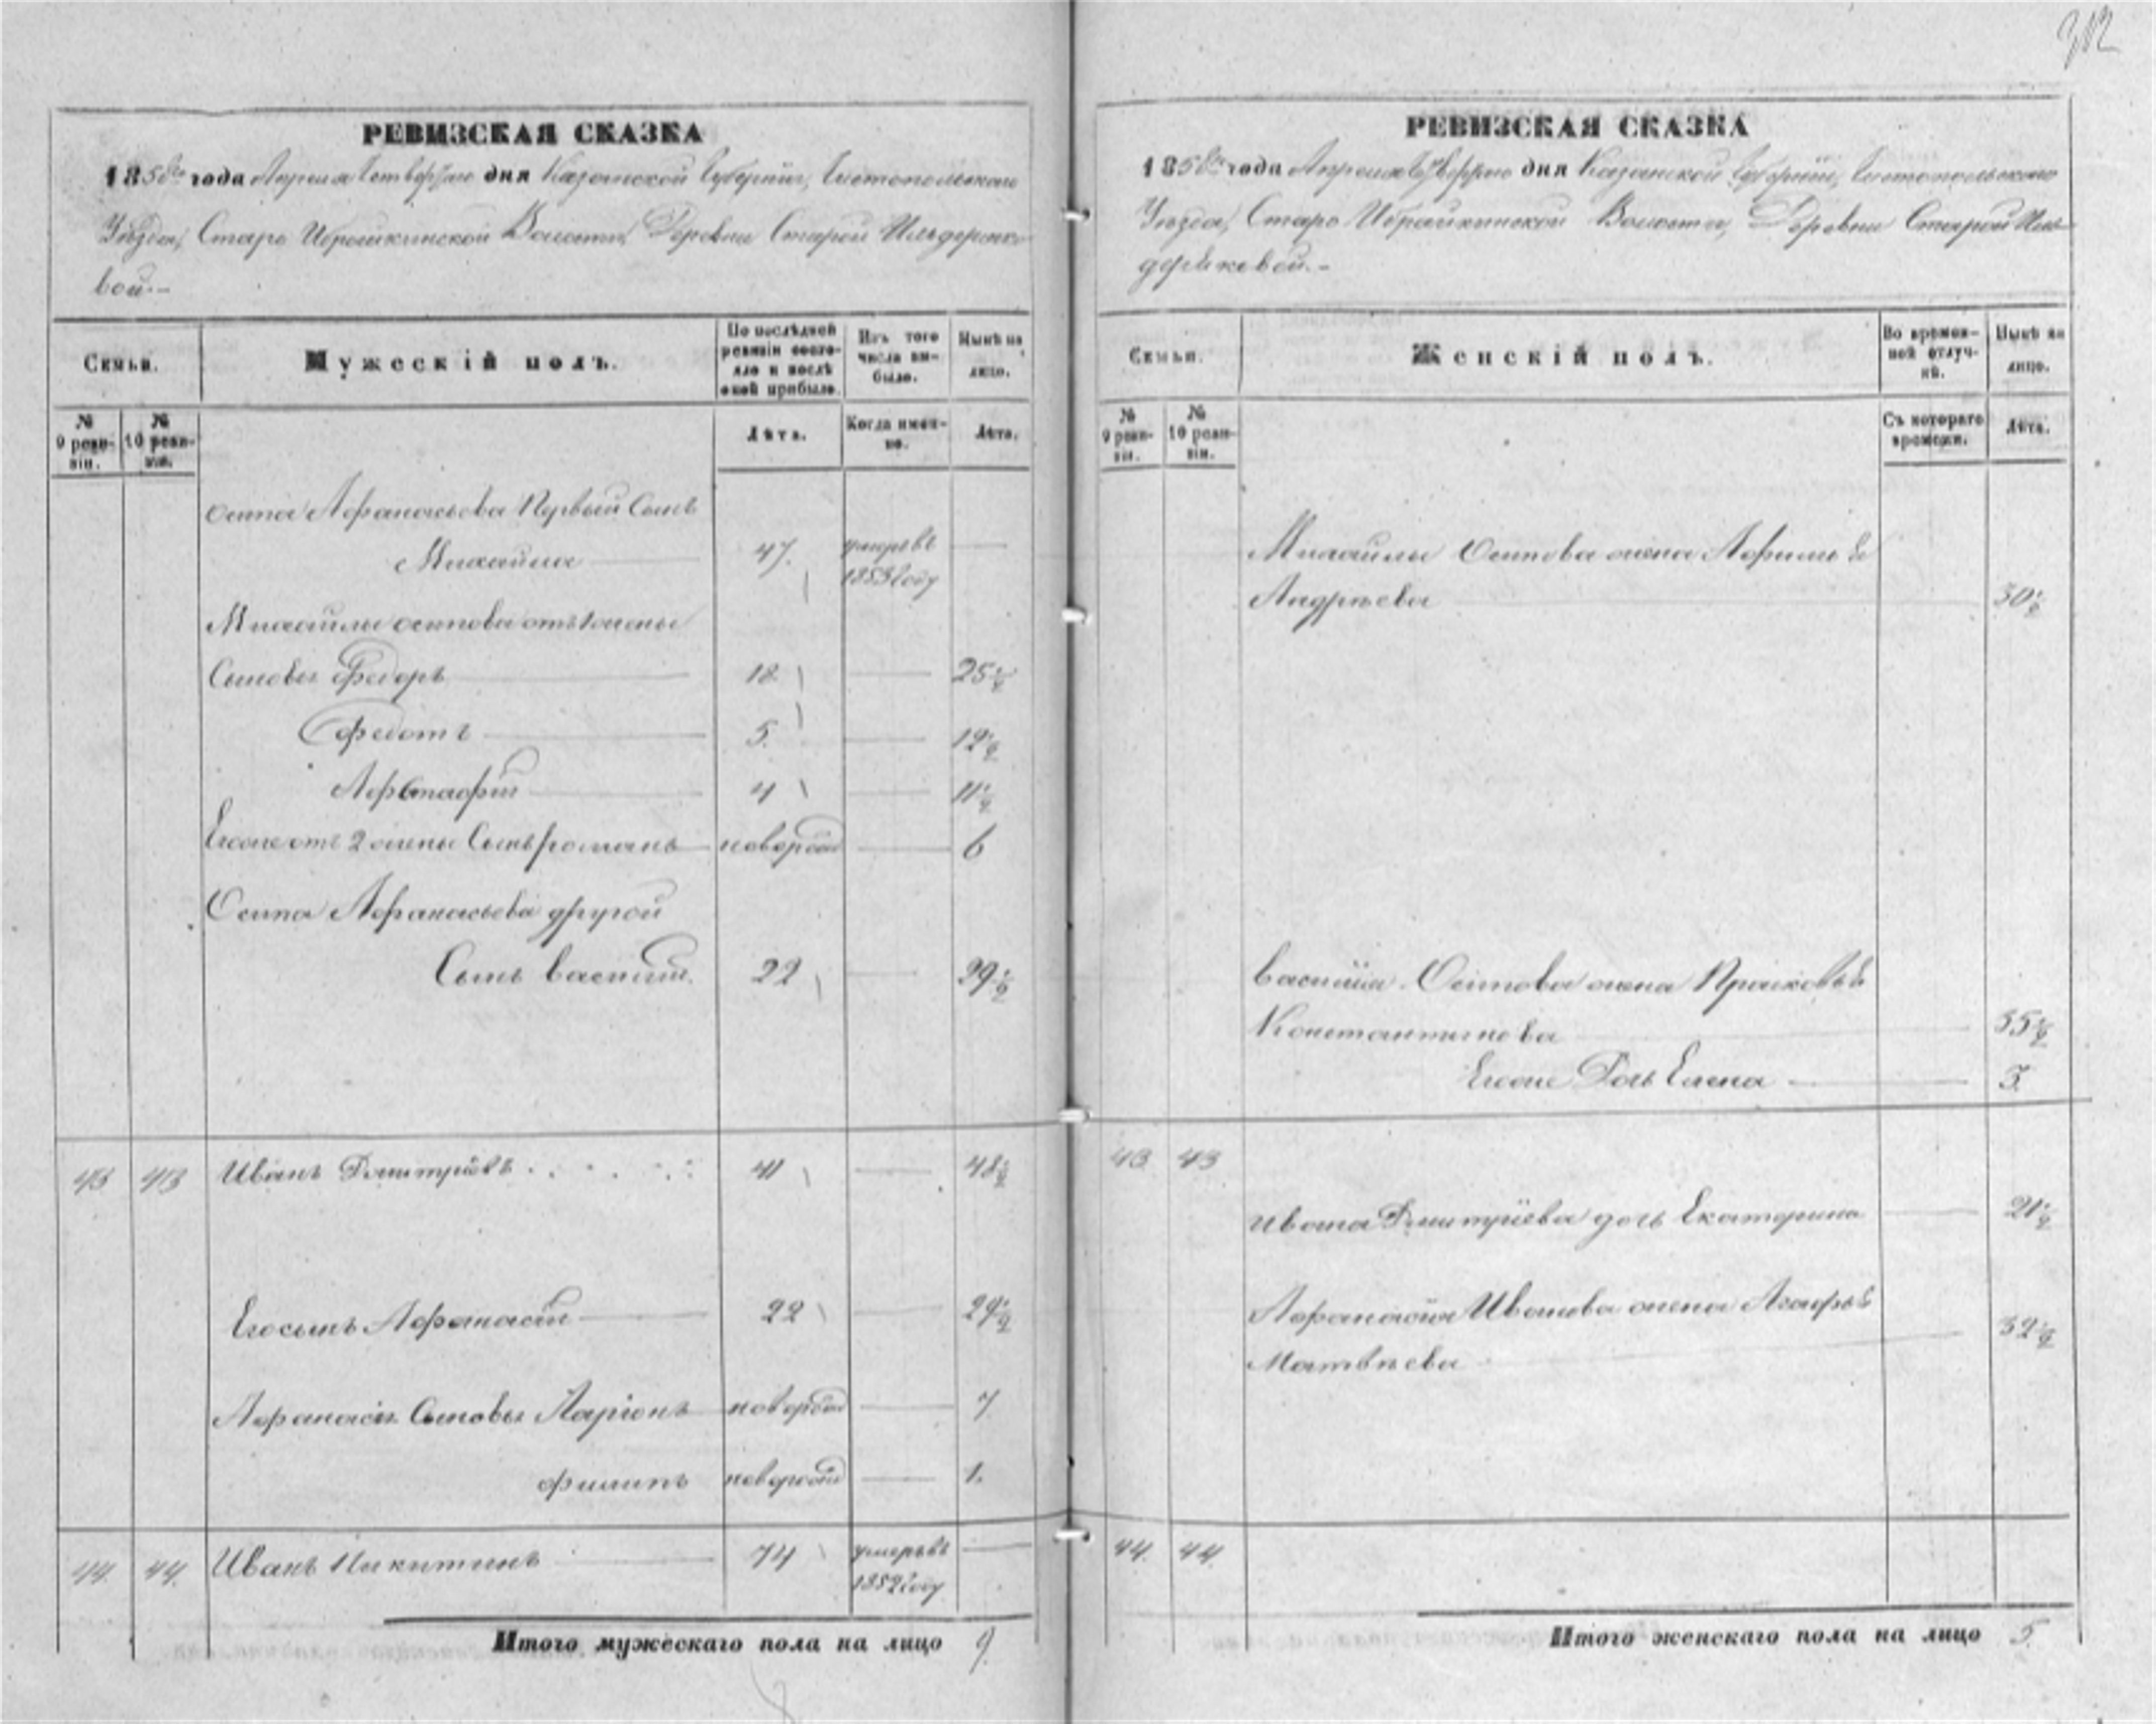 312
РЕВИЗСКАЯ СКАЗКА
1858го года Апреля Четвертаго дня Казанской Губернии, Чистопольскаго
Уѣзда, Старо Ибрайкинской Волости, Деревни Старой Ильдеряко
вой.-
Семьи.
Мужескій полъ.
По послѣдней
ревизіи состо-
яло и послѣ
оной прибыло.
Изъ того
числа вы-
было.
Нынѣ на
лицо.
№
9 реви-
зіи.
№
10 реви-
зіи.
Лѣта.
Когда имен-
но.
Лѣта.
Осипа Афанасьева Первый Сынъ
Михайла 47. умеръ въ
1853 году
Михайлы Осипова отъ 1 жены
Сыновья Федоръ 18 25 1/2
Федотъ 5. 12 1/2
4 11 1/2
Егоже отъ 2 жены Сынъ романъ новорожд 6
Осипа Афанасьева другой
Сынъ василий. 22 29 1/2
43 43 Иванъ Дмитріевъ 41 48 1/2
Егосынъ Афанасій 22 29 1/2
Афанасія Сыновья Ларіонъ новорожд 7
филипъ новорожд 1.
44. 44. Иванъ Никитинъ 74 умеръ въ
1852 году
Итого мужескаго пола на лицо 9.
РЕВИЗСКАЯ СКАЗКА
1858го года Апреля Четвертаго дня Казанской Губерніи, Чистопольскаго
Уѣзда, Старо Ибрайкинской Волости, Деревни Старой Иль
деряковой.-
Семьи.
Женскій полъ.
Во времен-
ной отлуч-
кѣ.
Нынѣ на
лицо.
№
9 реви-
зіи.
№
10 реви-
зіи.
Съ котораго
времени.
Лѣта.
Михайлы Осипова жена
Андрѣева 30 1/2
василія Осипова жена Прасковья
Константинова 35 1/2
Егоже Дочь Елена 3.
43 43
Ивана Дмитріева дочь Екатерина 21 1/2
Афанасія Иванова жена Агафья
Матвѣева 32 1/2
44. 44.
Итого женскаго пола на лицо 5.